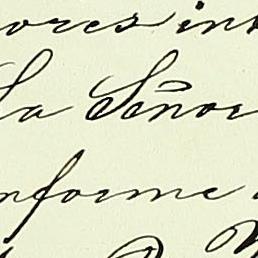 ores int
La Señor
nforme